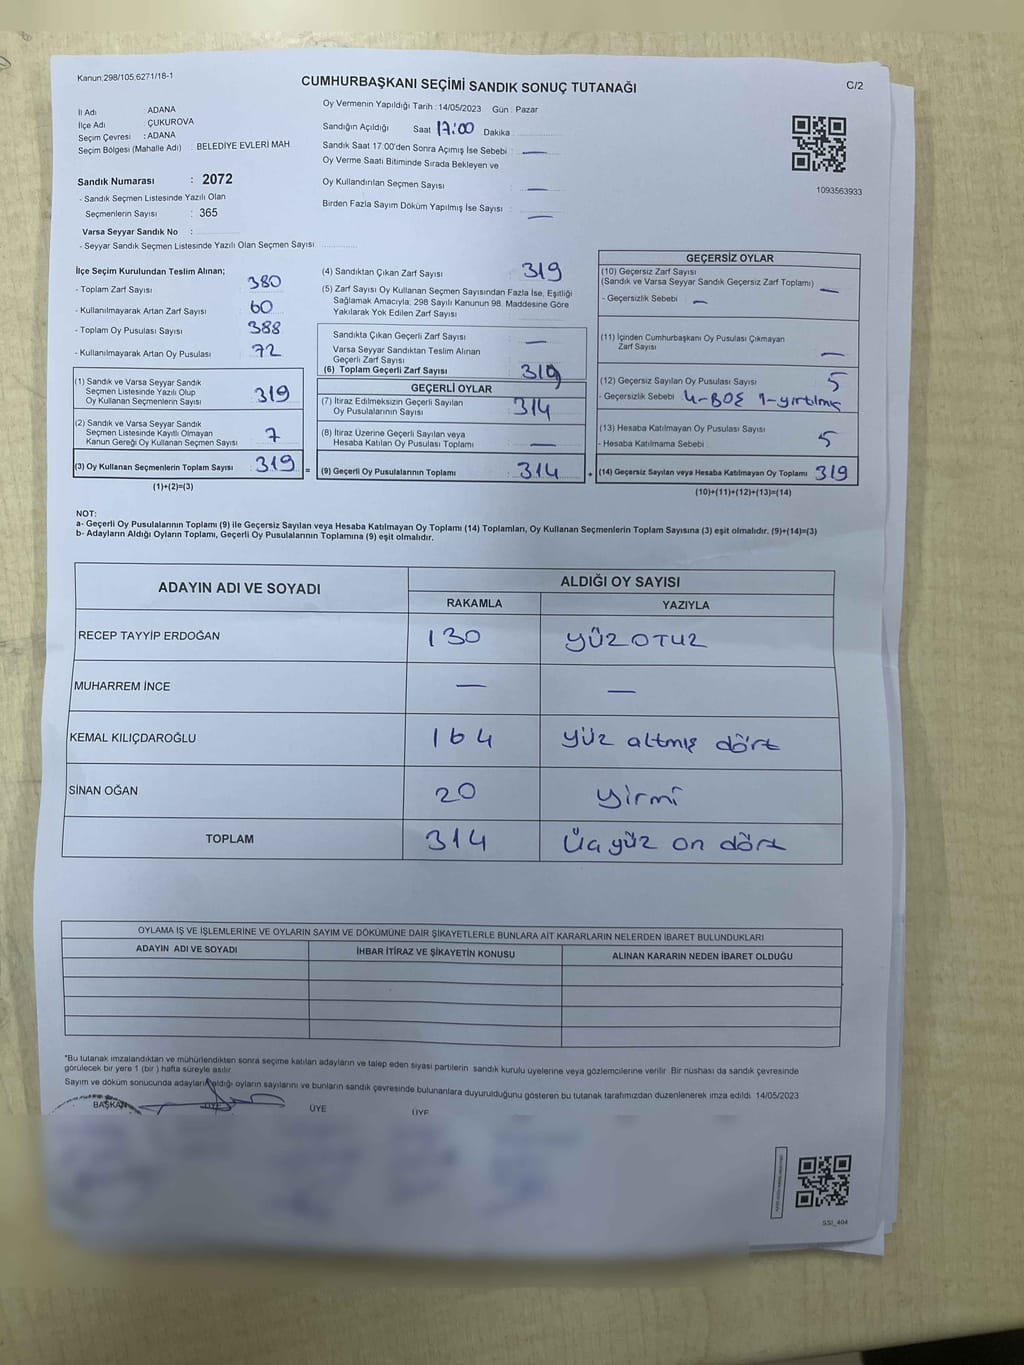 Kanun:298/105,6271/18-1
CUMHURBAŞKANI SEÇİMİ SANDIK SONUÇ TUTANAĞI
C/2
İl Adı : ADANA
İlçe Adı : ÇUKUROVA
Seçim Çevresi : ADANA
Seçim Bölgesi (Mahalle Adı) : BELEDİYE EVLERİ MAH.
Sandık Numarası : 2072
- Sandık Seçmen Listesinde Yazılı Olan
Seçmenlerin Sayısı : 365
Varsa Seyyar Sandık No :
- Seyyar Sandık Seçmen Listesinde Yazılı Olan Seçmen Sayısı
Oy Vermenin Yapıldığı Tarih : 14/05/2023 Gün : Pazar
Sandığın Açıldığı Saat 17:00 Dakika :
Sandık Saat 17:00'den Sonra Açımış İse Sebebi : —
Oy Verme Saati Bitiminde Sırada Bekleyen ve
Oy Kullandırılan Seçmen Sayısı : —
Birden Fazla Sayım Döküm Yapılmış İse Sayısı : —
1093563933
İlçe Seçim Kurulundan Teslim Alınan;
- Toplam Zarf Sayısı : 380
- Kullanılmayarak Artan Zarf Sayısı : 60
- Toplam Oy Pusulası Sayısı : 388
- Kullanılmayarak Artan Oy Pusulası : 72
(1) Sandık ve Varsa Seyyar Sandık
Seçmen Listesinde Yazılı Olup
Oy Kullanan Seçmenlerin Sayısı : 319
(2) Sandık ve Varsa Seyyar Sandık
Seçmen Listesinde Kayıtlı Olmayan
Kanun Gereği Oy Kullanan Seçmen Sayısı : 7
(3) Oy Kullanan Seçmenlerin Toplam Sayısı : 319 =
(1)+(2)=(3)
(4) Sandıktan Çıkan Zarf Sayısı : 319
(5) Zarf Sayısı Oy Kullanan Seçmen Sayısından Fazla İse, Eşitliği
Sağlamak Amacıyla; 298 Sayılı Kanunun 98. Maddesine Göre
Yakılarak Yok Edilen Zarf Sayısı :
Sandıkta Çıkan Geçerli Zarf Sayısı : —
Varsa Seyyar Sandıktan Teslim Alınan
Geçerli Zarf Sayısı : —
(6) Toplam Geçerli Zarf Sayısı : 319
GEÇERLİ OYLAR
(7) İtiraz Edilmeksizin Geçerli Sayılan
Oy Pusulalarının Sayısı : 314
(8) İtiraz Üzerine Geçerli Sayılan veya
Hesaba Katılan Oy Pusulası Toplamı : —
(9) Geçerli Oy Pusulalarının Toplamı : 314 +
GEÇERSİZ OYLAR
(10) Geçersiz Zarf Sayısı
(Sandık ve Varsa Seyyar Sandık Geçersiz Zarf Toplamı) : —
- Geçersizlik Sebebi : —
(11) İçinden Cumhurbaşkanı Oy Pusulası Çıkmayan
Zarf Sayısı : —
(12) Geçersiz Sayılan Oy Pusulası Sayısı : 5
- Geçersizlik Sebebi : 4-BOŞ 1-yırtılmış
(13) Hesaba Katılmayan Oy Pusulası Sayısı : 5
- Hesaba Katılmama Sebebi :
(14) Geçersiz Sayılan veya Hesaba Katılmayan Oy Toplamı : 319
(10)+(11)+(12)+(13)=(14)
NOT:
a- Geçerli Oy Pusulalarının Toplamı (9) ile Geçersiz Sayılan veya Hesaba Katılmayan Oy Toplamı (14) Toplamları, Oy Kullanan Seçmenlerin Toplam Sayısına (3) eşit olmalıdır. (9)+(14)=(3)
b- Adayların Aldığı Oyların Toplamı, Geçerli Oy Pusulalarının Toplamına (9) eşit olmalıdır.
ADAYIN ADI VE SOYADI
ALDIĞI OY SAYISI
RAKAMLA YAZIYLA
RECEP TAYYİP ERDOĞAN 130 YÜZ OTUZ
MUHARREM İNCE — —
KEMAL KILIÇDAROĞLU 164 yüz altmış dört
SİNAN OĞAN 20 yirmi
TOPLAM 314 Üçyüz on dört
OYLAMA İŞ VE İŞLEMLERİNE VE OYLARIN SAYIM VE DÖKÜMÜNE DAİR ŞİKAYETLERLE BUNLARA AİT KARARLARIN NELERDEN İBARET BULUNDUKLARI
ADAYIN ADI VE SOYADI İHBAR İTİRAZ VE ŞİKAYETİN KONUSU ALINAN KARARIN NEDEN İBARET OLDUĞU
*Bu tutanak imzalandıktan ve mühürlendikten sonra seçime katılan adayların ve talep eden siyasi partilerin sandık kurulu üyelerine veya gözlemcilerine verilir. Bir nüshası da sandık çevresinde
görülecek bir yere 1 (bir) hafta süreyle asılır.
Sayım ve döküm sonucunda adayların aldığı oyların sayılarını ve bunların sandık çevresinde bulunanlara duyurulduğunu gösteren bu tutanak tarafımızdan düzenlenerek imza edildi. 14/05/2023
BAŞKAN ÜYE ÜYE ÜYE
SSI_404